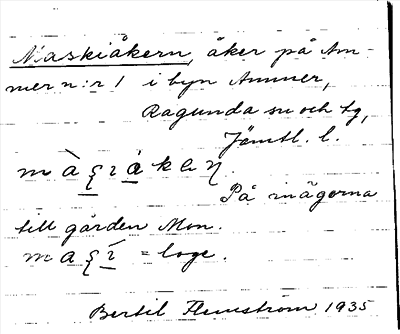 Maskiåkern, åker på Am-
mer n:r 1 i byn Ammer,
Ragunda sn och tg,
Jämtl. l.
På ägorna
till gården Mon.
= loge.
Bertil Flemström 1935